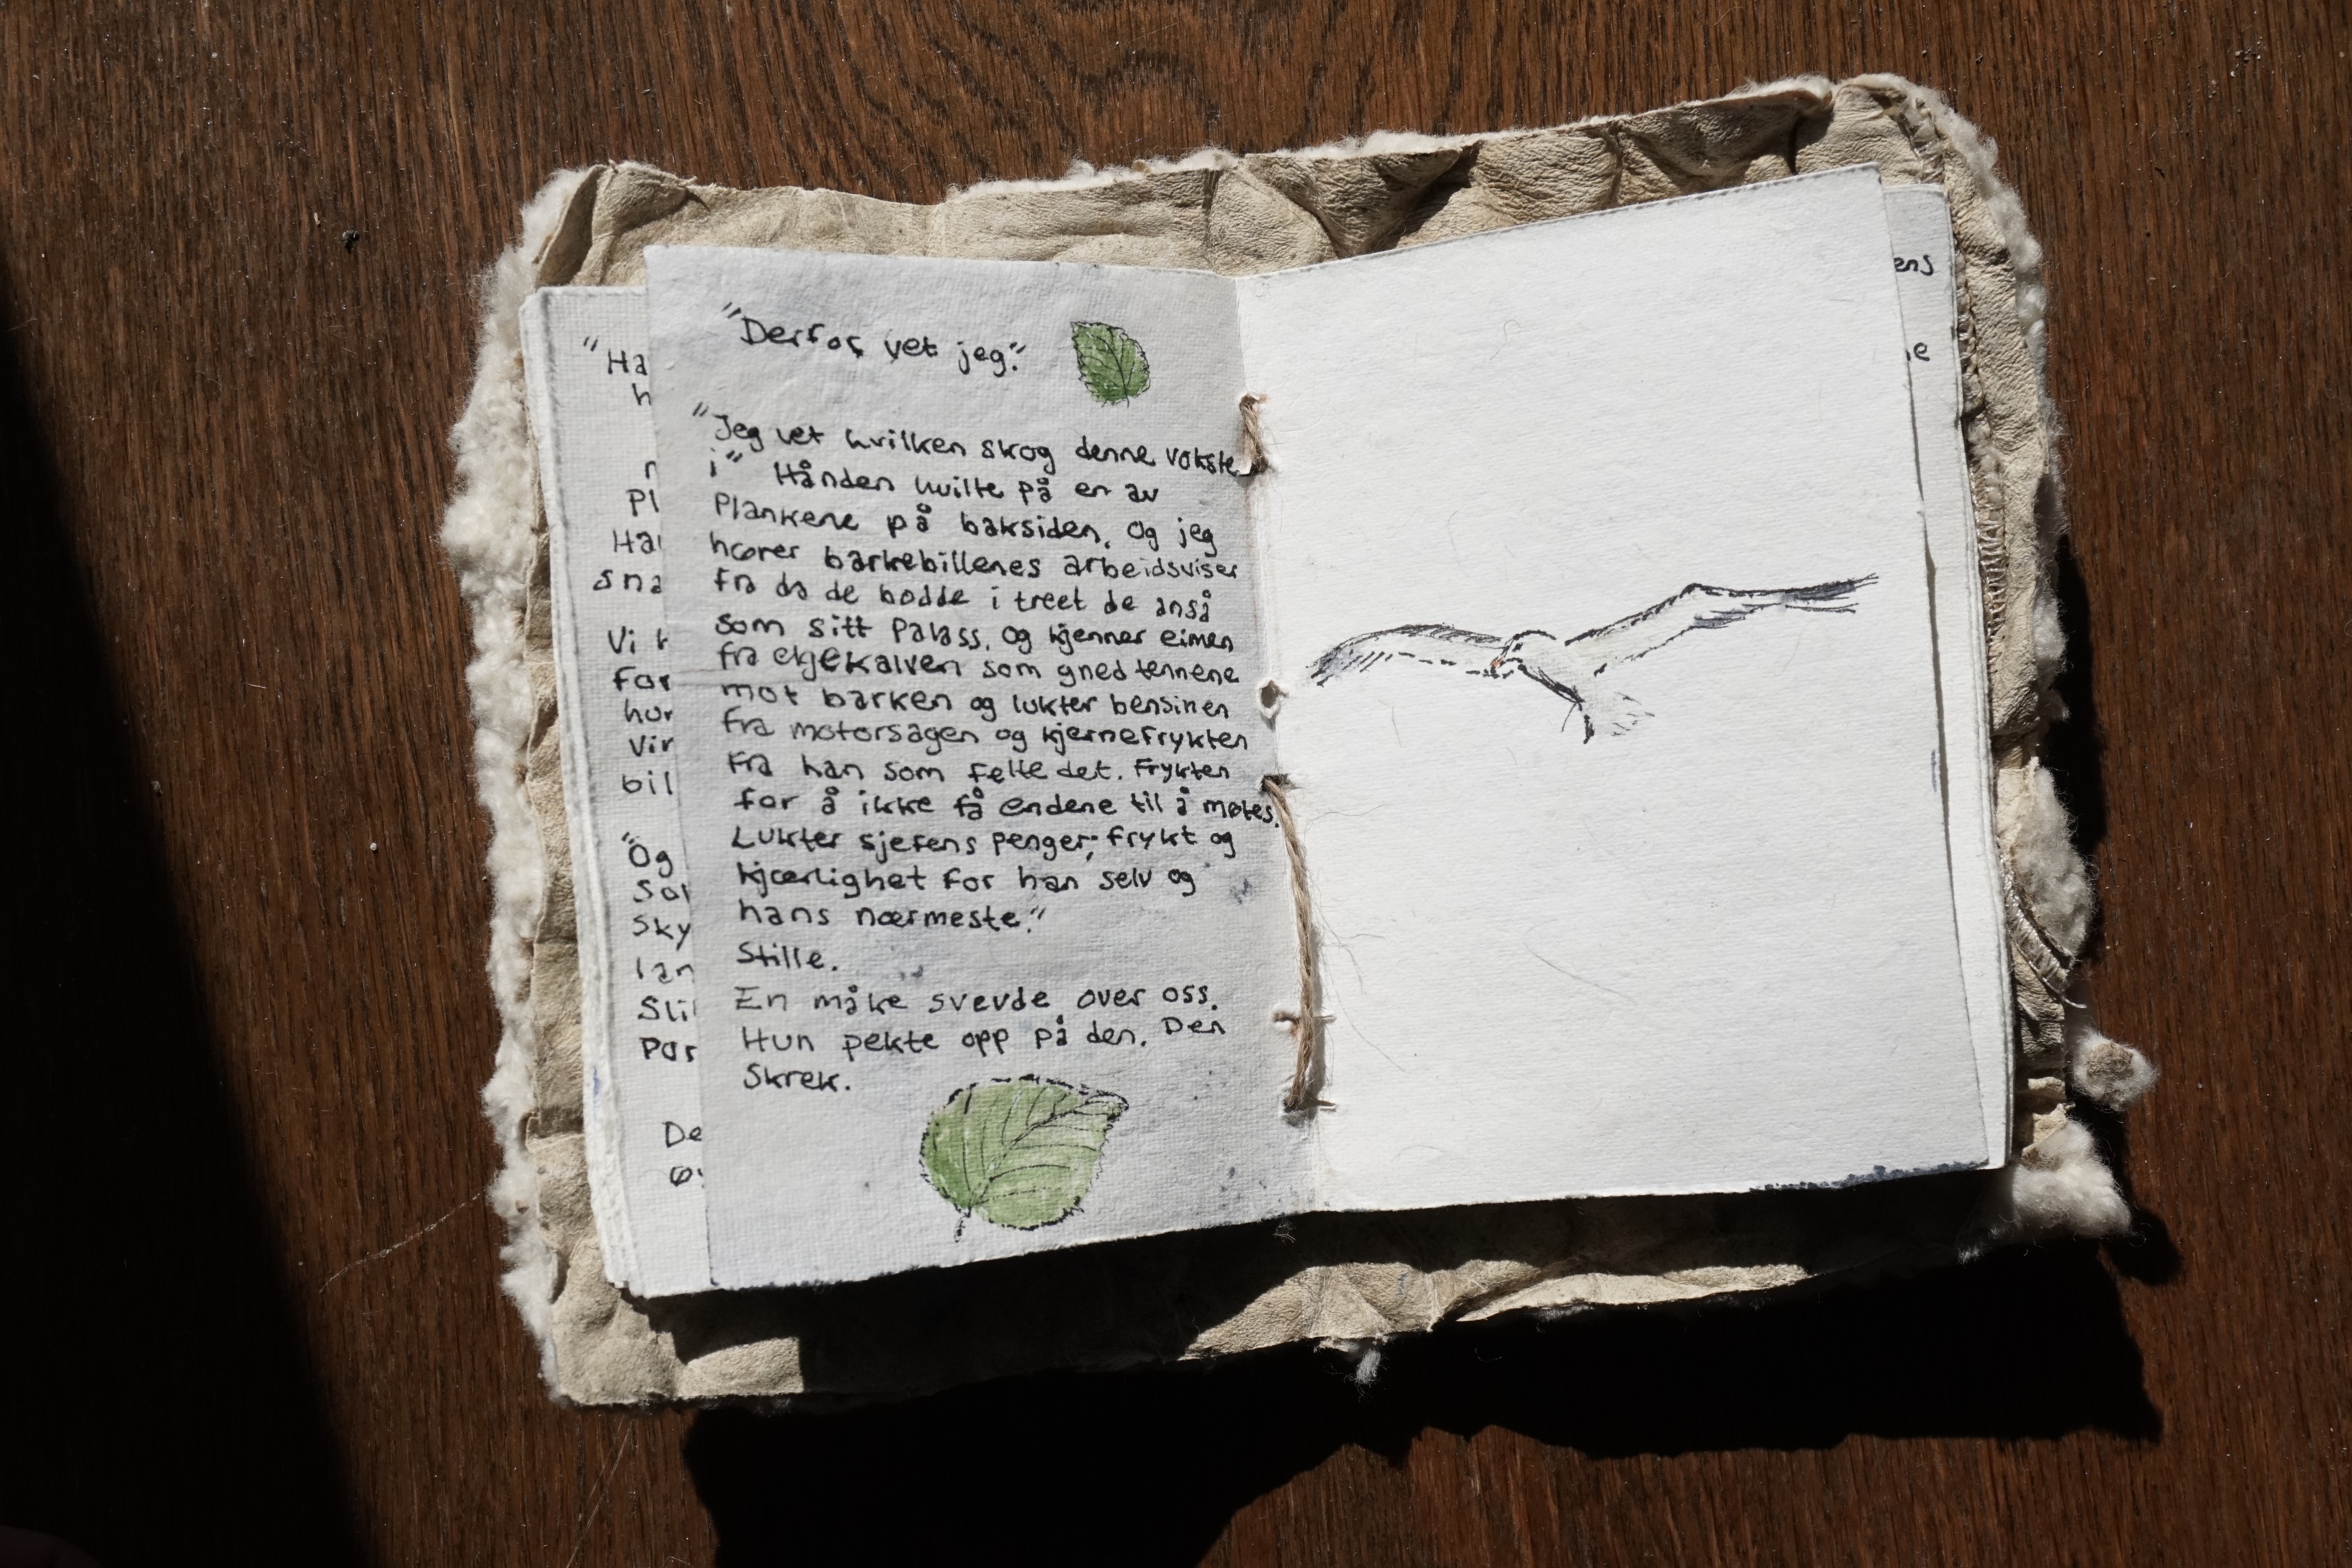 "Derfor vet jeg."
"Jeg vet hvilken skog denne vokste
i" Hånden hvilte på en av
Plankene på baksiden. Og jeg
hører barkebillenes arbeidsviser
fra da de bodde i treet de anså
som sitt Palass. Og kjenner eimen
fra elgjekalven som gned tennene
mot barken og lukter bensinen
fra motorsagen og kjernefrykten
fra han som felte det. Frykten
for å ikke få endene til å møtes.
Lukter sjefens penger; frykt og
kjærlighet for han selv og
hans nærmeste."
Stille.
En måke svevde over oss.
Hun pekte opp på den. Den
Skrek.
"Ha
h
Pl
sna
Vi
For
hur
Vir
bil
"Og
Sky
lan
De
ens